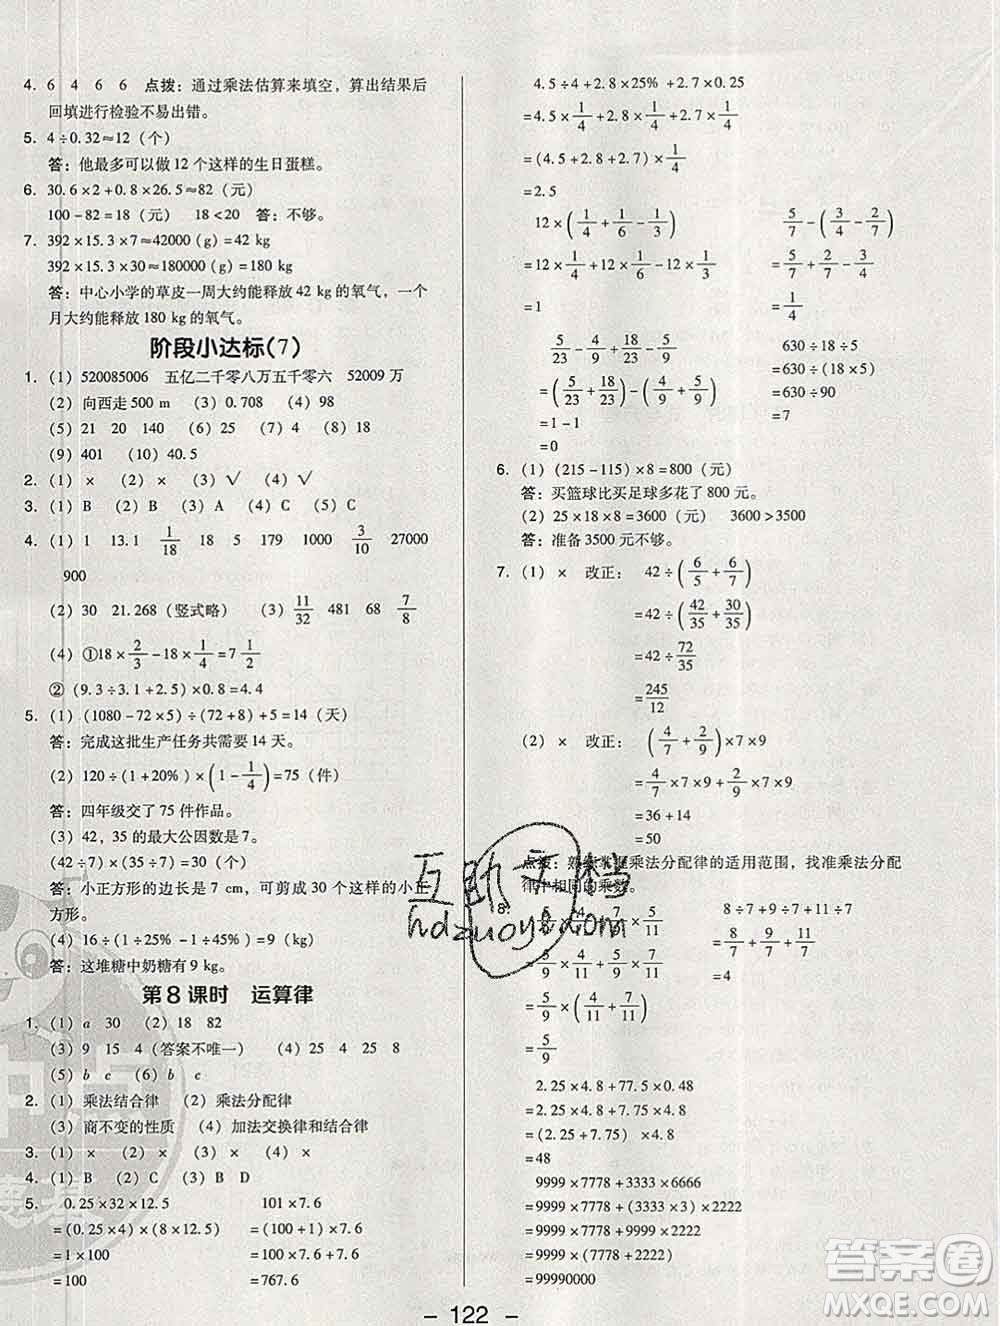 4. 6 4 6 6 点拨：通过乘法估算来填空，算出结果后
回填进行检验不易出错。
5. 4÷0.32≈12（个）
答：他最多可以做 12 个这样的生日蛋糕。
6. 30.6×2+0.8×26.5≈82（元）
100-82=18（元） 18<20 答：不够。
7. 392×15.3×7≈42000（g）=42 kg
392×15.3×30≈180000（g）=180 kg
答：中心小学的草皮一周大约能释放 42 kg 的氧气，一个
月大约能释放 180 kg 的氧气。
阶段小达标（7）
1. （1）520085006 五亿二千零八万五千零六 52009 万
（2）向西走 500 m （3）0.708 （4）98
（5）21 20 140 （6）25 （7）4 （8）18
（9）401 （10）40.5
2. （1）× （2）× （3）√ （4）√
3. （1）B （2）B （3）A （4）C （5）C
4. （1）1 13.1 1/18 18 5 179 1000 3/10 27000
900
（2）30 21.268（竖式略） （3）11/32 481 68 7/8
（4）①18×2/3-18×1/4=7 1/2
②（9.3÷3.1+2.5）×0.8=4.4
5. （1）（1080-72×5）÷（72+8）+5=14（天）
答：完成这批生产任务共需要 14 天。
（2）120÷（1+20%）×（1-1/4）=75（件）
答：四年级交了 75 件作品。
（3）42，35 的最大公因数是 7。
（42÷7）×（35÷7）=30
答：小正方形的边长是 7 cm，可剪成 30 个这样的小正
方形。
（4）16÷（1÷25%-1÷45%）=9（kg）
答：这堆糖中奶糖有 9 kg。
第 8 课时 运算律
1. （1）a 30 （2）18 82
（3）9 15 4（答案不唯一） （4）25 4 25 8
（5）b c （6）b c
2. （1）乘法结合律 （2）乘法分配律
（3）商不变的性质 （4）加法交换律和结合律
3. （1）× （2）× （3）× （4）×
4. （1）B （2）C （3）B D
5. 0.25×32×12.5 101×7.6
=（0.25×4）×（8×12.5） =（100+1）×7.6
=1×100 =100×7.6+1×7.6
=100 =767.6
4.5÷4+2.8×25%+2.7×0.25
=4.5×1/4+2.8×1/4+2.7×1/4
=（4.5+2.8+2.7）×1/4
=2.5
12×（1/4+1/6-1/3） 5/7-（3/4-2/7）
=12×1/4+12×1/6-12×1/3 =5/7+2/7-3/4
=1 =1/4
5/23-4/9+18/23-5/9 630÷18÷5
=（5/23+18/23）-（4/9+5/9） =630÷（18×5）
=1-1 =630÷90
=0 =7
6. （1）（215-115）×8=800（元）
答：买篮球比买足球多花了 800 元。
（2）25×18×8=3600（元） 3600>3500
答：准备 3500 元不够。
7. （1）× 改正： 42÷（6/5+6/7）
=42÷（42/35+30/35）
=42÷72/35
=245/12
（2）× 改正： （4/7+2/9）×7×9
=4/7×7×9+2/9×7×9
=36+14
=50
点拨：熟练掌握乘法分配律的适用范围，找准乘法分配
律中相同的乘数。
8. 5/9×4/11+7/9×5/11 8÷7+9÷7-3÷7
=5/9×4/11+5/9×7/11 =8/7+9/7-3/7
=5/9×（4/11+7/11） =2
=5/9
2.25×4.8+77.5×0.48
=2.25×4.8+7.75×4.8
=（2.25+7.75）×4.8
=48
9999×7778+3333×6666
=9999×7778+（3333×3）×2222
=9999×7778+9999×2222
=9999×（7778+2222）
=99990000
互助文档
hdzuoye.com
答案圈
MXQE.COM
- 122 -